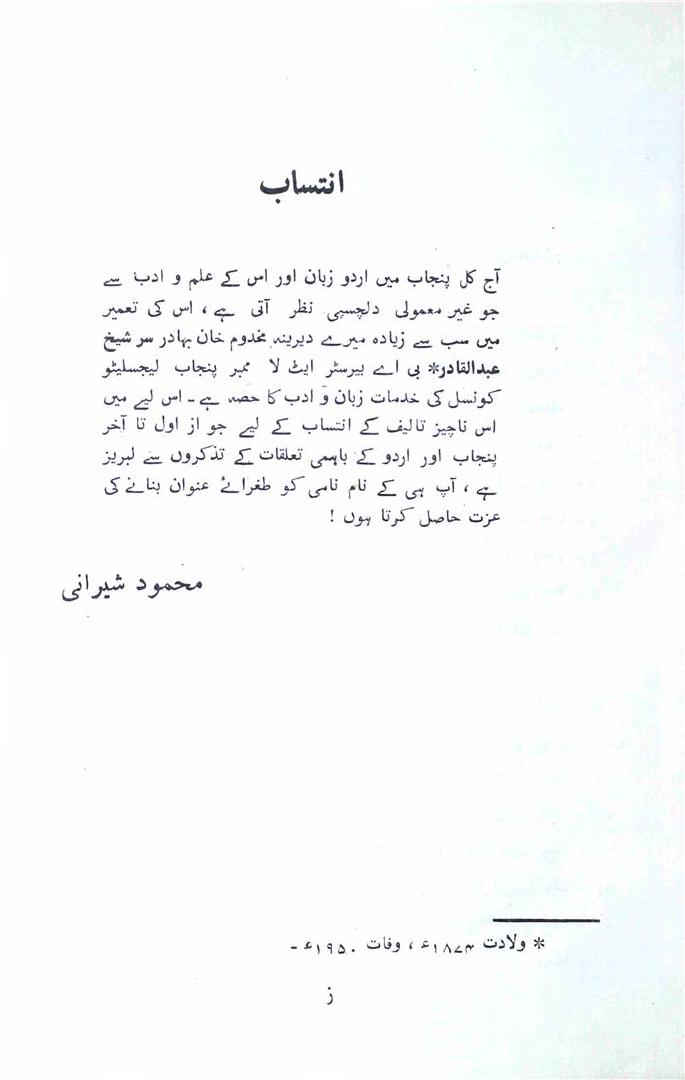 انتساب
آج کل پنجاب میں اردو زبان اور اس کے علم و ادب سے
جو غیر معمولی دلچسپی نظر آتی ہے ، اس کی تعمیر
میں سب سے زیادہ میرے دیرینہ مخدوم خان بہادر سر شیخ
عبدالقادر* بی اے بیرسٹر ایٹ لا ممبر پنجاب لیجسلیٹو
کونسل کی خدمات زبان و ادب کا حصہ ہے ۔ اس لیے میں
اس ناچیز تالیف کے انتساب کے لیے جو از اول تا آخر
پنجاب اور اردو کے باہمی تعلقات کے تذکروں سے لبریز
ہے ، آپ ہی کے نام نامی کو طغرائے عنوان بنانے کی
عزت حاصل کرتا ہوں !
محمود شیرانی
* ولادت ۱۸۷۴ء ، وفات ۱۹۵۰ء ۔
ز